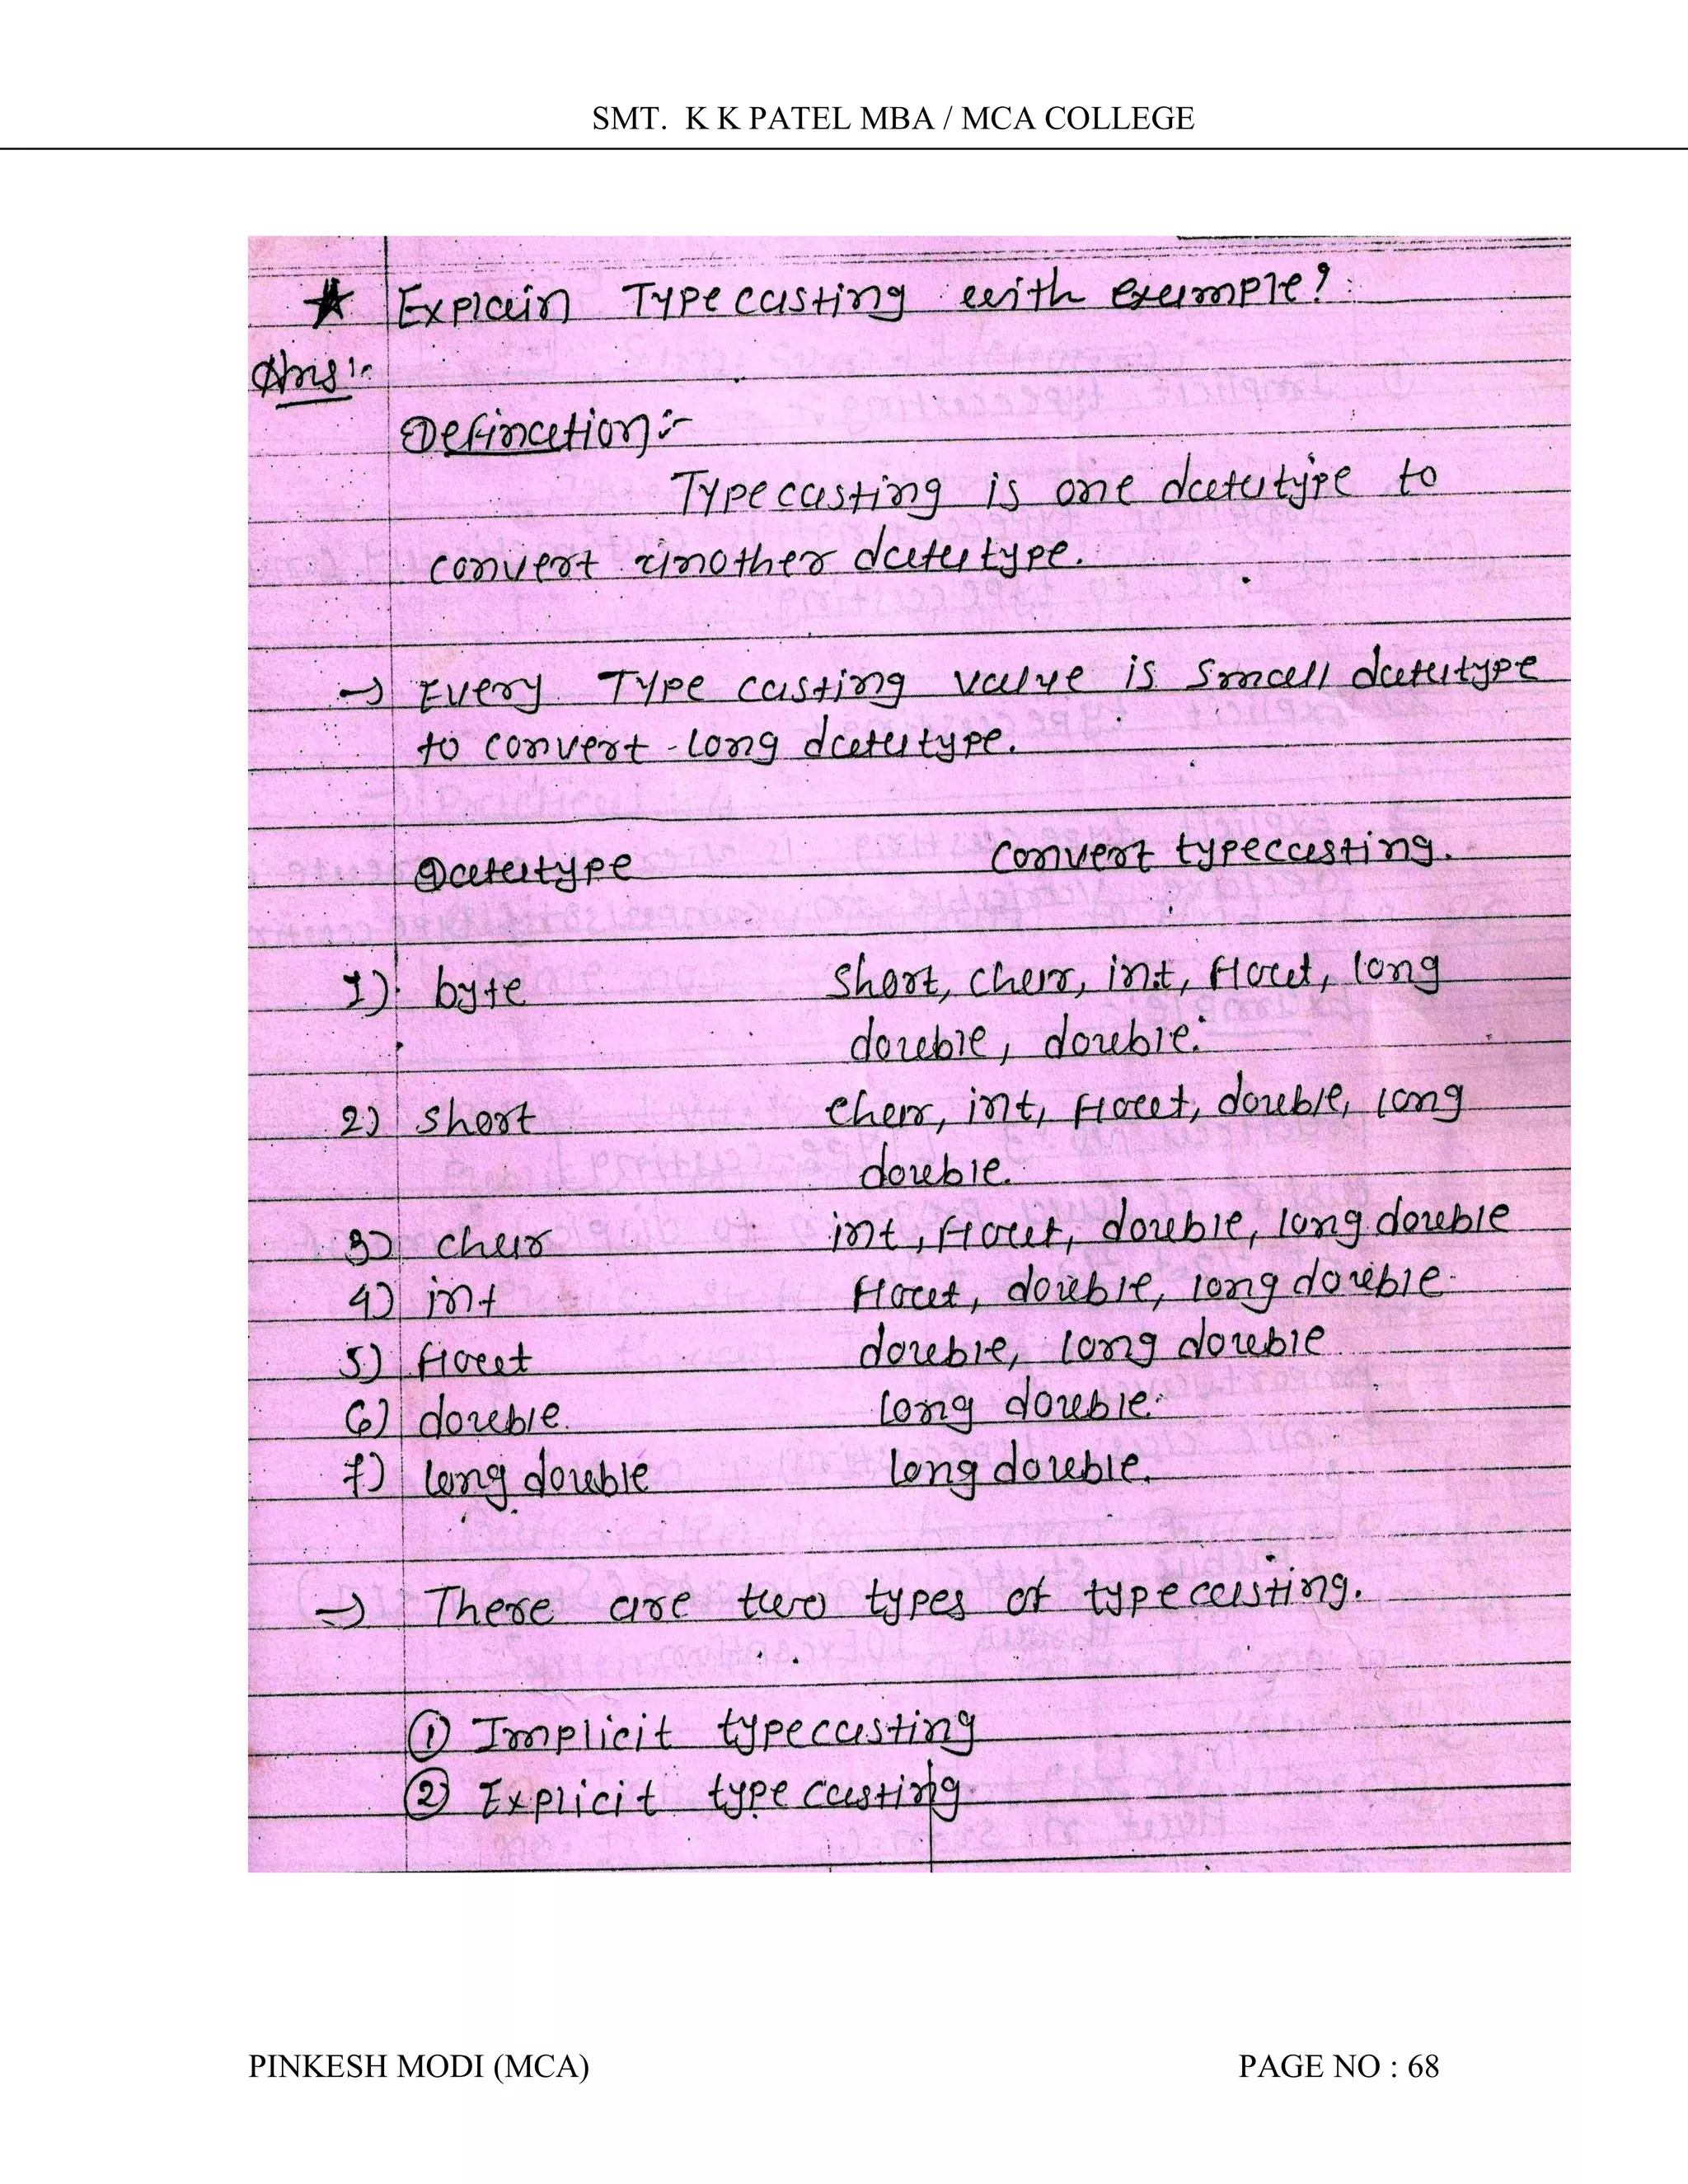 SMT. K K PATEL MBA / MCA COLLEGE
★ Explain Typecasting with example?
Ans :-
Defination :-
Typecasting is one datatype to
convert another datatype.
→ Every Type casting value is small datatype
to convert long datatype.
Datatype Convert typecasting.
1) byte short, char, int, float, long
double, double.
2) short char, int, float, double, long
double.
3) char int, float, double, long double
4) int float, double, long double.
5) float double, long double
6) double. long double.
7) long double long double.
⇒ There are two types of typecasting.
① Implicit typecasting
② Explicit typecasting.
PINKESH MODI (MCA) PAGE NO : 68